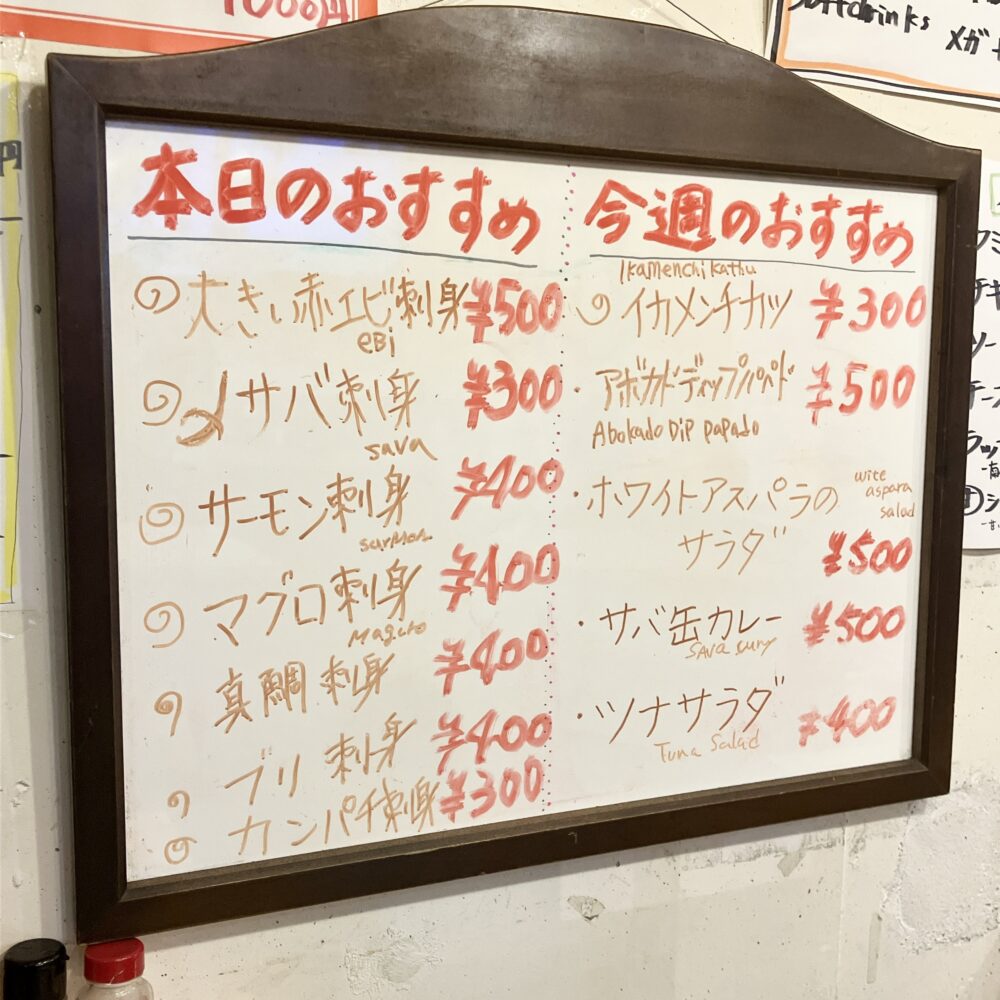 1000円
Softdrinks
メガ
円
本日のおすすめ
大きい赤エビ刺身 ¥500
eBi
〆サバ刺身 ¥300
sava
サーモン刺身 ¥400
sarmon
マグロ刺身 ¥400
Maguro
真鯛刺身 ¥400
ブリ刺身 ¥400
カンパチ刺身 ¥300
今週のおすすめ
Ikamenchikathu
イカメンチカツ ¥300
・アボカドディップパパド ¥500
Abokado Dip papado
・ホワイトアスパラの
wite
aspara
salad
サラダ ¥500
・サバ缶カレー ¥500
SAva curry
・ツナサラダ ¥400
Tuna Salad